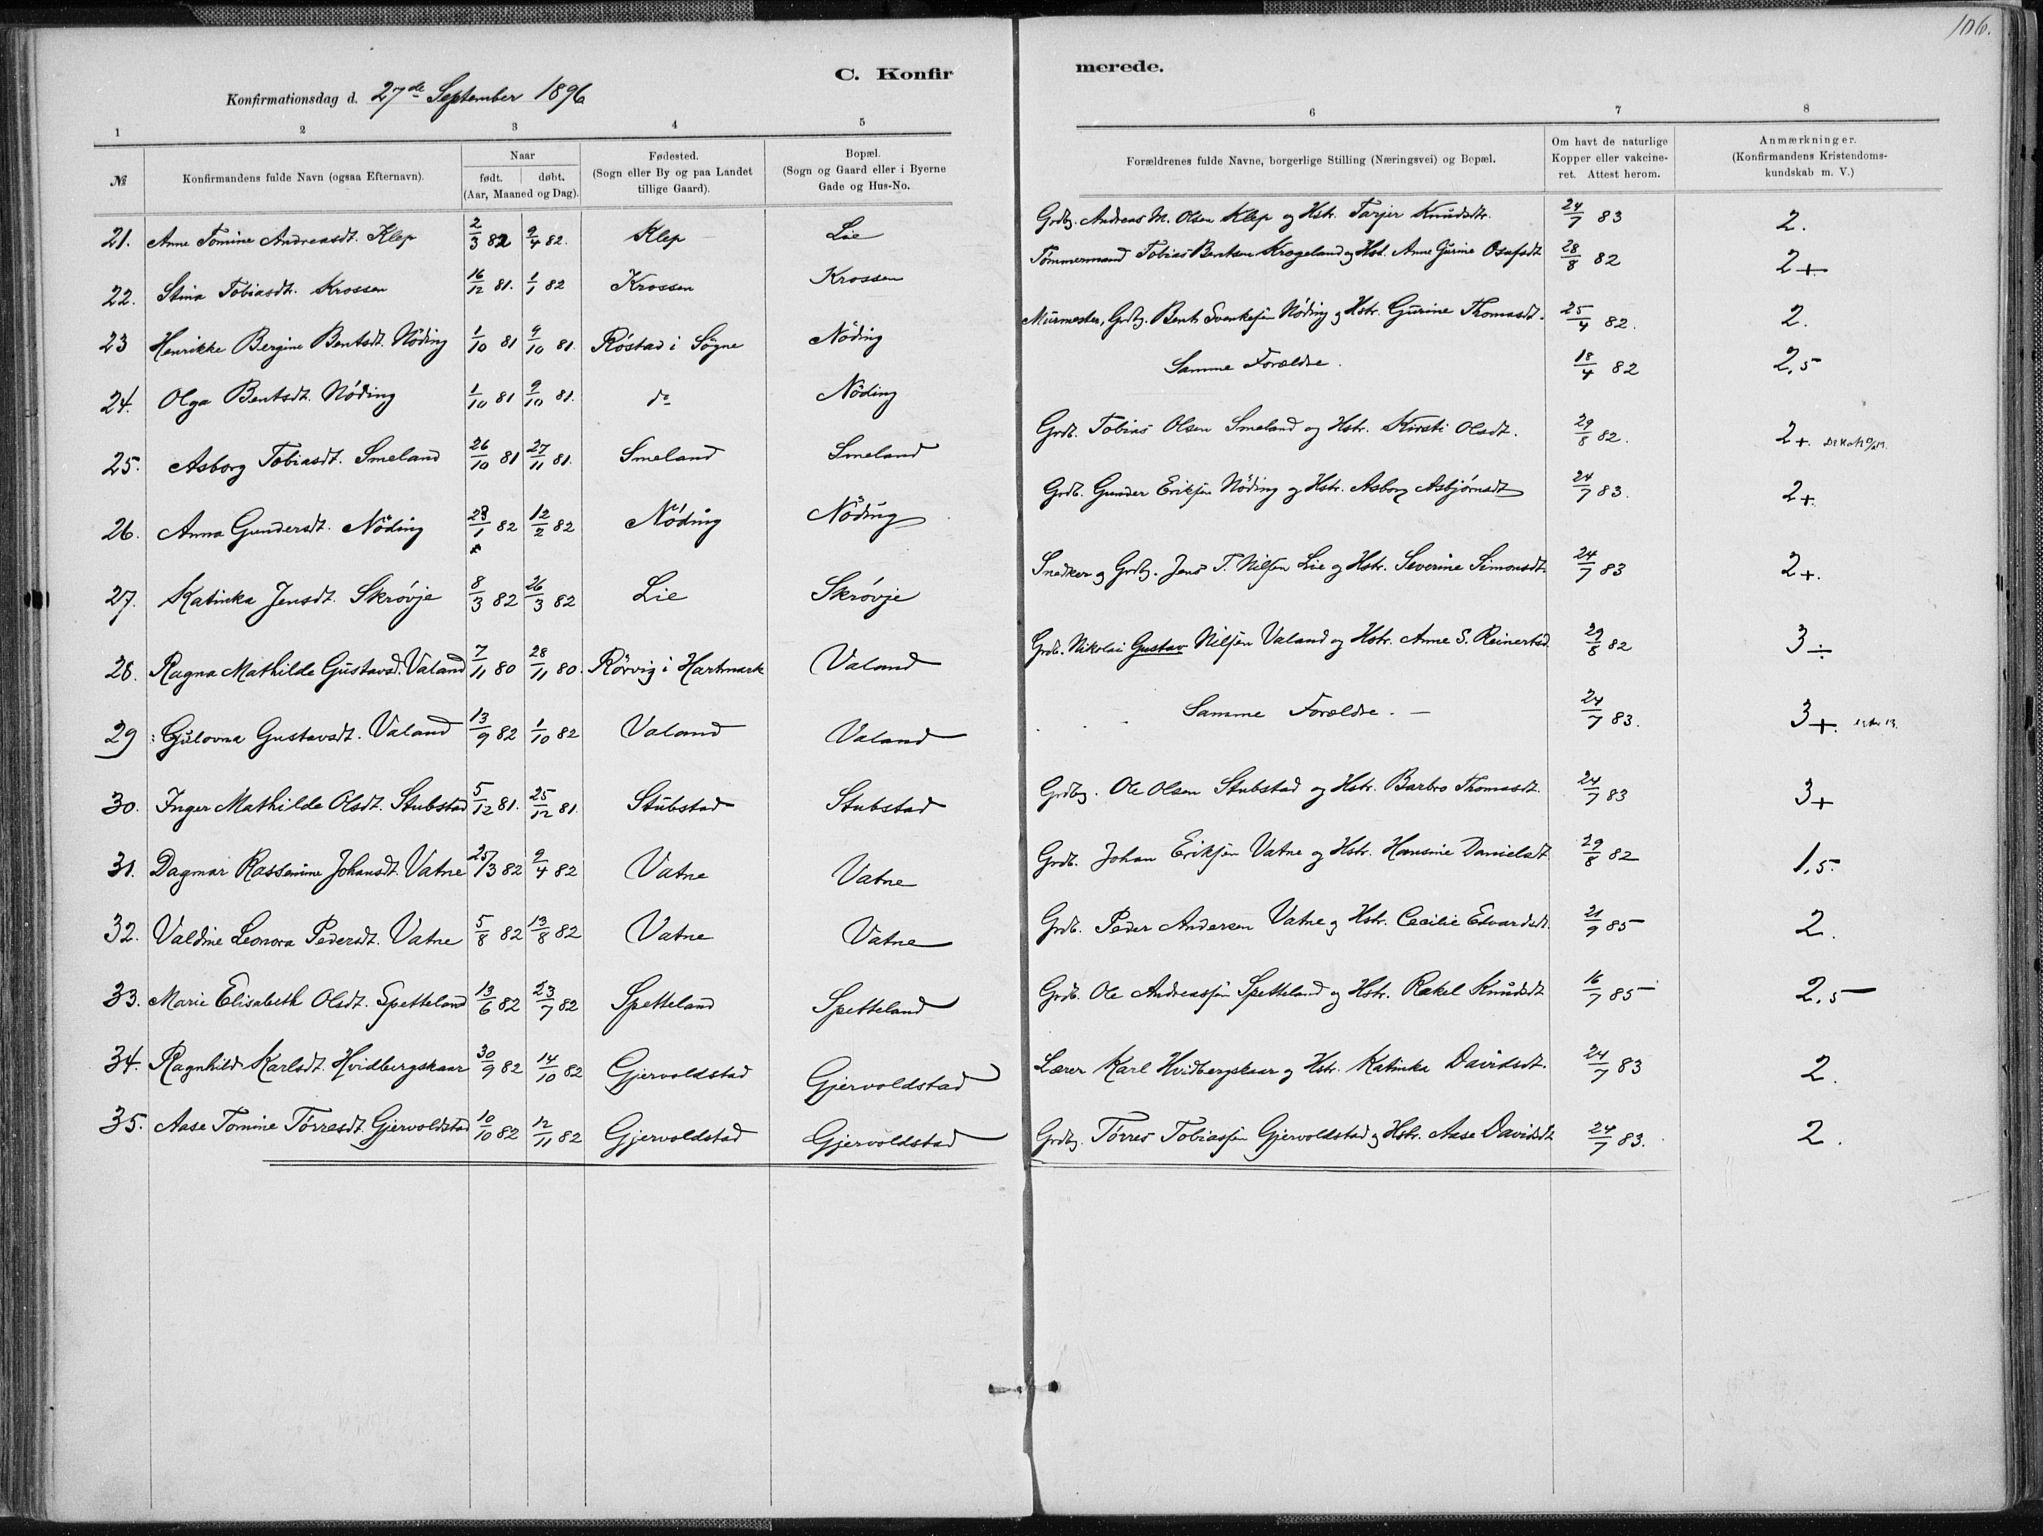 106.
C. Konfirmerede.
Konfirmationsdag d. 27de September 1896
1 2 3 4 5 6 7 8
№ Konfirmandens fulde Navn (ogsaa Efternavn). Naar født. døbt. (Aar, Maaned og Dag). Fødested. (Sogn eller By og paa Landet tillige Gaard). Bopæl. (Sogn og Gaard eller i Byerne Gade og Hus-No. Forældrenes fulde Navne, borgerlige Stilling (Næringsvei) og Bopæl. Om havt de naturlige Kopper eller vakcineret. Attest herom. Anmærkninger. (Konfirmandens Kristendomskundskab m. V.)
21. Anne Tomine Andreasdt. Klep 2/3 82 9/4 82. Klep Lie Grdbg. Andreas M. Olsen Klep og Hstr. Tarjer Knudsdtr. 24/7 83 2.
22. Stina Tobiasdt. Krossen 16/12 81. 1/1 82 Krossen Krossen Tømmermand Tobias Bentsen Krogeland og Hst. Anne Gurine Osufsdt 28/8 82 2+
23 Henrikke Bergine Bentsdt. Nöding 1/10 81 9/10 81. Röstad i Sögne Nöding Murmester, Grdbg. Bent Svenkesen Nöding og Hstr. Gurine Thomasdt. 25/4 82. 2.
24. Olga Bentsdt. Nöding 1/10 81 9/10 81. do Nöding Samme Forældre. 18/4 82 2,5
25. Asborg Tobiasdt. Smeland 26/10 81 27/11 81. Smeland Smeland Grdb. Tobias Olsen Smeland og Hstr. Kirsti Olsdt. 29/8 82. 2+.
26. Anna Gundersdt. Nöding 23/1 82 12/2 82 Nöding Nöding Grdb. Gunder Eriksen Nöding og Hstr. Asborg Asbjörnsdt 24/7 83. 2+.
27. Katinka Jensdt. Skrövje 8/3 82 26/3 82 Lie Skrövje Snedker og Grdbg. Jens T. Nilsen Lie og Hstr. Severine Simonsdt. 24/7 83 2+.
28. Ragna Mathilde Gustavsd. Valand 7/11 80 28/11 80. Rörvig i Hartmark Valand Grdb. Nikolai Gustav Nilsen Valand og Hstr. Anne S. Reinertsd. 29/8 82 3÷
29 Gulovna Gustavsdt. Valand 13/9 82 1/10 82 Valand Valand Samme Forældre. – 24/7 83. 3+.
30. Inger Mathilde Olsdt. Stubstad 5/12 81. 25/12 81. Stubstad Stubstad Grdbg. Ole Olsen Stubstad og Hstr. Barbro Thomasdt. 24/7 83 3+
31. Dagmar Rassmine Johansdt. Vatne 25/3 82 9/4 82 Vatne Vatne Grdb. Johan Eriksen Vatne og Hstr. Hansine Danielsdt 29/8 82 1,5.
32. Valdine Leonora Pedersdt. Vatne 5/8 82 13/8 82 Vatne Vatne Grdb. Peder Andersen Vatne og Hstr. Cecilie Edvardsdt. 21/9 85 2.
33. Marie Elisabeth Olsdt. Spetteland 13/6 82 23/7 82 Spetteland Spetteland Grdb. Ole Andreassen Spetteland og Hstr. Rakel Knudsdt 16/7 85 2,5
34. Ragnhild Karlsdt. Hvidbergskaar 30/9 82 14/10 82 Gjervoldstad Gjervoldstad Lærer Karl Hvidbergskaar og Hstr. Katinka Davidsdt. 24/7 83 2.
35. Aase Tomine Törresdt. Gjervoldstad 10/10 82 12/11 82 Gjervoldstad Gjervoldstad Grdbg. Törres Tobiassen Gjervoldstad og Hstr. Aase Davidsdt 24/7 83. 2.